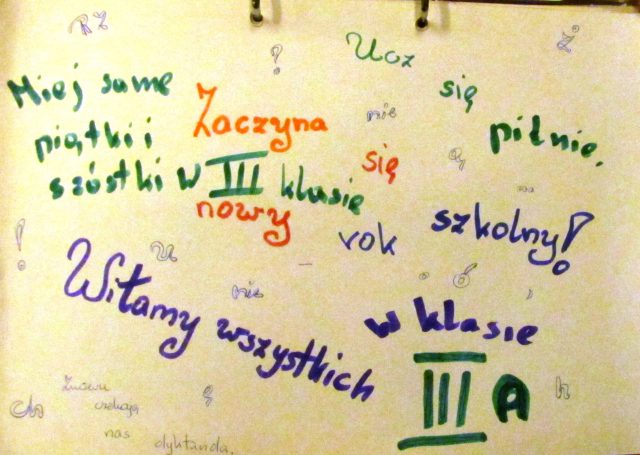 RZ
?
Ucz się pilnie.
Ż
Miej same
piątki i
szóstki w III klasie
Zaczyna
się
nowy
rok
szkolny!
nie
ą
!
u
nie
ó
,
Witamy wszystkich
w klasie
III A
Ch
Znowu
czekają
nas dyktanda.
ę
h